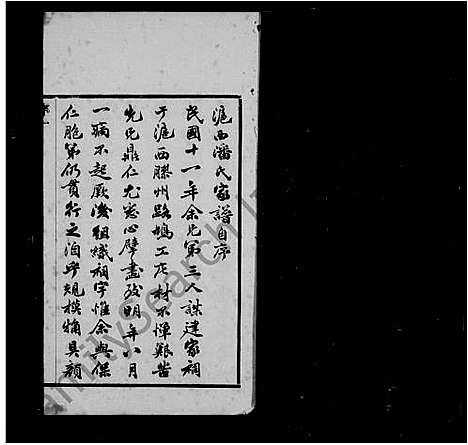 滬西潘氏家譜自序
民國十一年余兄弟三人謀建家祠
于滬西膠州路鳩工庀材不憚艱苦
先兄鼎仁尤悉心擘畫及明年六月
一病不起厥後組織祠宇惟余與保
仁胞弟仍貫行之洎乎規模備具顏
FamilySearch